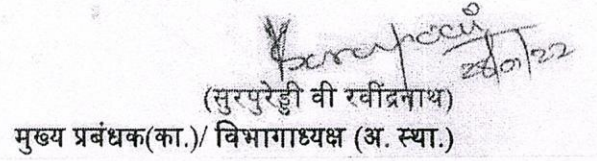 28/01/22
(सुरपुरेड्डी वी रवींद्रनाथ)
मुख्य प्रबंधक(का.)/ विभागाध्यक्ष (अ. स्था.)